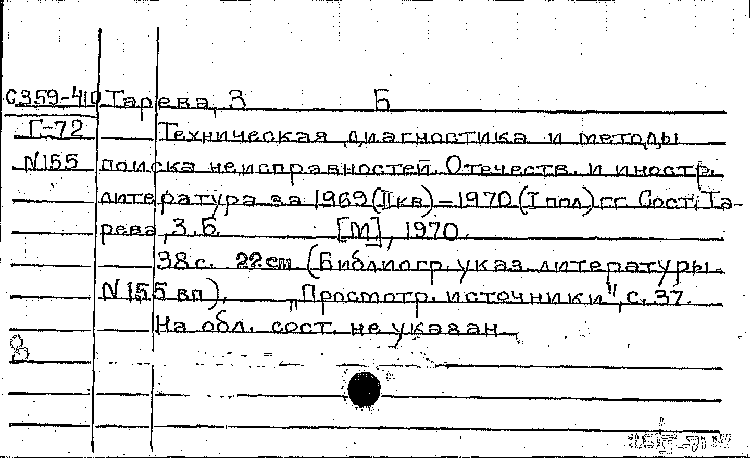 С359-410 Тарева, З Б
Г-72 Техническая диагностика и методы
N155 поиска неисправностей. Отечеств. и иностр.
литература за 1969 (II кв) – 1970 (I пол) гг Сост: Та-
рева, З. Б. [М], 1970.
38с. 22см (Библиогр. указ. литературы
N 155 вп). „Просмотр. источники", с. 37.
На обл. сост. не указан
8